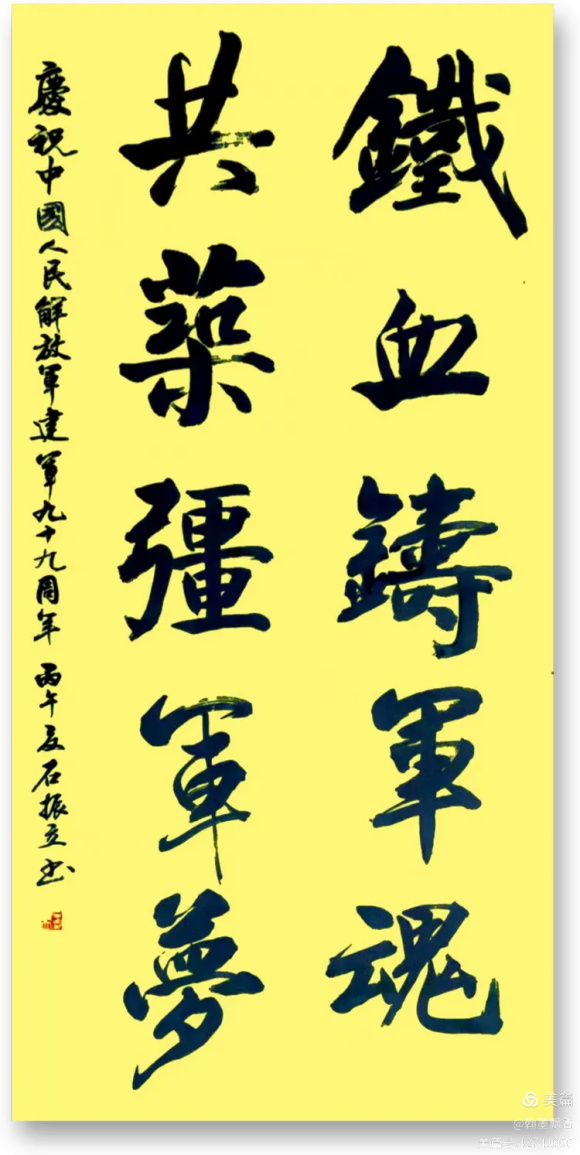 鐵血鑄軍魂
共築彊軍夢
慶祝中國人民解放軍建軍九十九周年 丙午夏石振立书
美篇